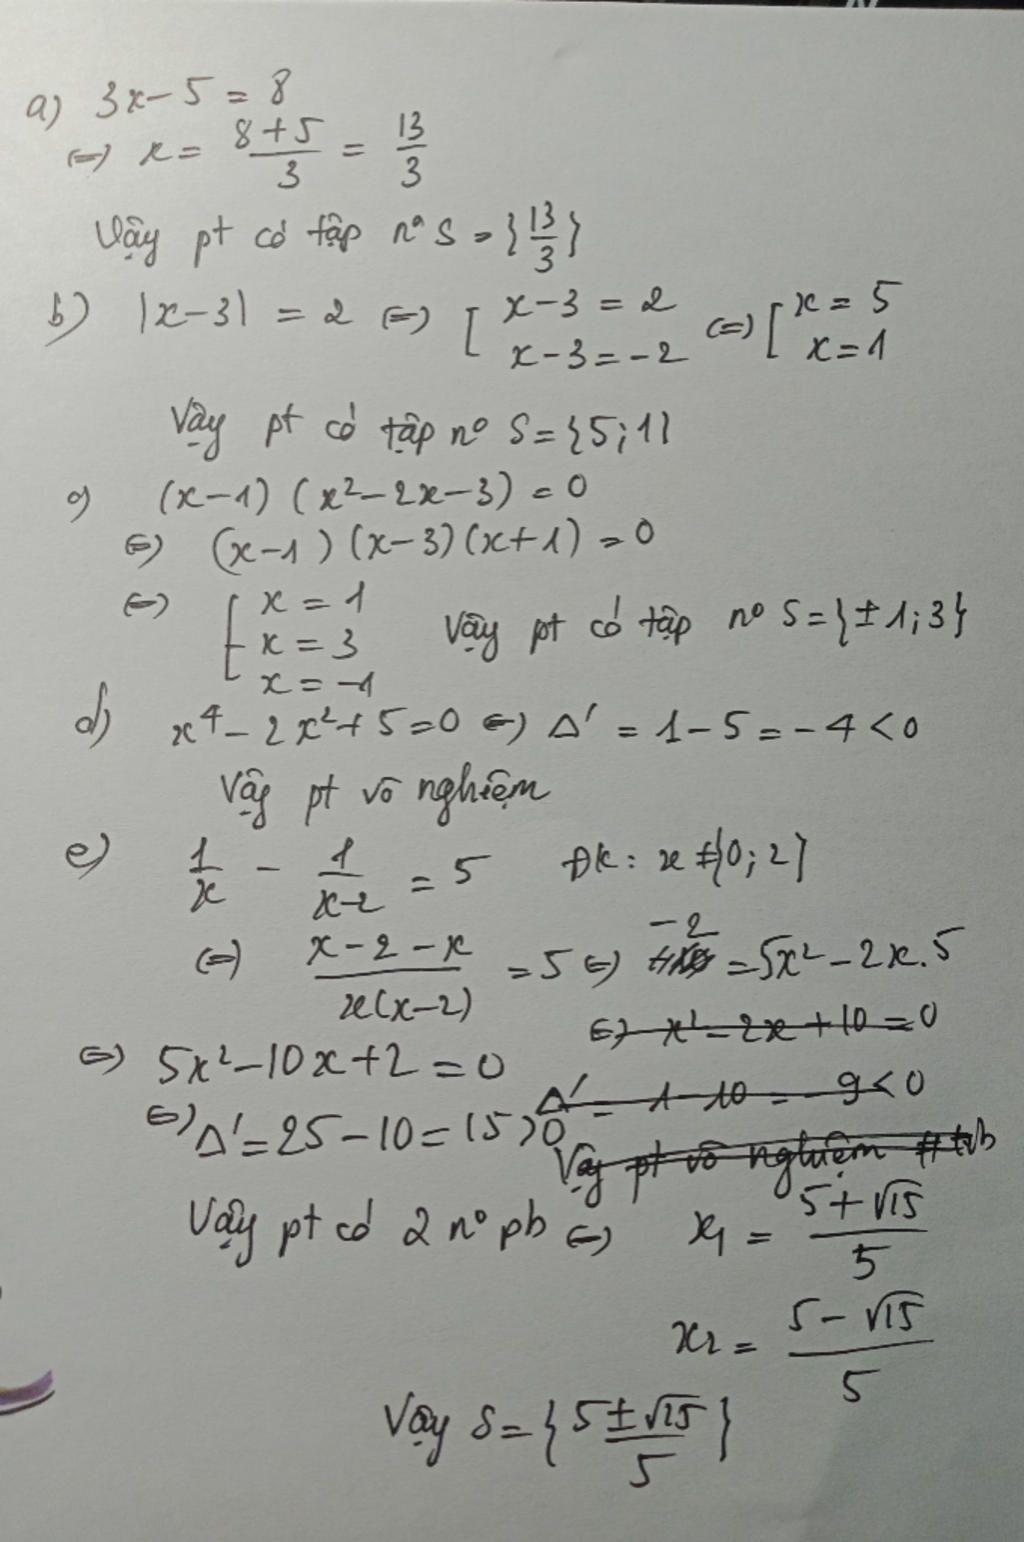 a) 3x-5 = 8
⇔ x = (8+5)/3 = 13/3
Vậy pt có tập nº S = {13/3}
b) |x-3| = 2 ⇔ [ x-3 = 2 ; x-3 = -2 ⇔ [ x = 5 ; x = 1
Vậy pt có tập nº S = {5; 1}
c) (x-1) (x²-2x-3) = 0
⇔ (x-1) (x-3) (x+1) = 0
⇔ [ x = 1 ; x = 3 ; x = -1 Vậy pt có tập nº S = {±1; 3}
d) x⁴ - 2x² + 5 = 0 ⇔ Δ' = 1-5 = -4 < 0
Vậy pt vô nghiệm
e) 1/x - 1/(x-2) = 5 ĐK: x ≠ {0; 2}
⇔ (x-2-x)/(x(x-2)) = 5 ⇔ -2 = 5x² - 2x.5
⇔ x² - 2x + 10 = 0
⇔ 5x² - 10x + 2 = 0
Δ' = 1-10 = -9 < 0
⇔ Δ' = 25-10 = 15 > 0
Vậy pt vô nghiệm
Vậy pt có 2 nº pb ⇔ x₁ = (5+√15)/5
x₂ = (5-√15)/5
Vậy S = {(5±√15)/5}